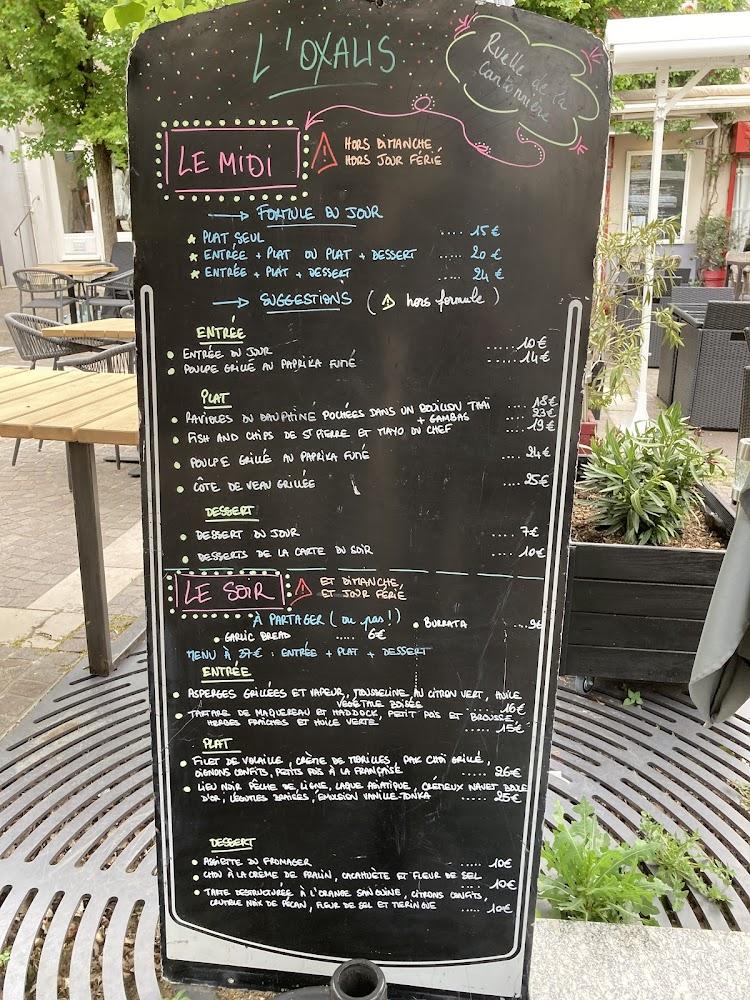 L'OXALIS
Ruelle de la
Cantonnière
LE MIDI
HORS DIMANCHE,
HORS JOUR FÉRIÉ
FORMULE DU JOUR
PLAT SEUL ..... 15€
ENTRÉE + PLAT OU PLAT + DESSERT ..... 20€
ENTRÉE + PLAT + DESSERT ..... 24€
SUGGESTIONS ( ⚠ hors formule )
ENTRÉE
ENTRÉE DU JOUR ...... 10€
POULPE GRILLÉ AU PAPRIKA FUMÉ ...... 14€
PLAT
RAVIOLES DU DAUPHINÉ POCHÉES DANS UN BOUILLON THAÏ .... 18€
+ GAMBAS .... 23€
FISH AND CHIPS DE ST PIERRE ET MAYO DU CHEF .... 19€
POULPE GRILLÉ AU PAPRIKA FUMÉ .... 24€
CÔTE DE VEAU GRILLÉE .... 25€
DESSERT
DESSERT DU JOUR .... 7€
DESSERTS DE LA CARTE DU SOIR .... 10€
LE SOIR
ET DIMANCHE,
ET JOUR FÉRIÉ
À PARTAGER ( ou pas ! )
GARLIC BREAD ..... 6€
BURRATA ...9€
MENU À 37€ : ENTRÉE + PLAT + DESSERT
ENTRÉE
ASPERGES GRILLÉES ET VAPEUR, MOUSSELINE AU CITRON VERT, HUILE
VÉGÉTALE BOISÉE ..... 16€
TARTARE DE MAQUEREAU ET HADDOCK, PETIT POIS ET BROUSSE,
HERBES FRAÎCHES ET HUILE VERTE ..... 15€
PLAT
FILET DE VOLAILLE, CRÈME DE MORILLES, PAK CHOÏ GRILLÉ,
OIGNONS CONFITS, PETITS POIS À LA FRANÇAISE ..... 26€
LIEU NOIR PÊCHE DE LIGNE, LAQUE ASIATIQUE, CRÉMEUX NAVET BOULE
D'OR, LÉGUMES BRAISÉS, ÉMULSION VANILLE-TONKA ..... 25€
DESSERT
ASSIETTE DU FROMAGER ..... 10€
CHOU À LA CRÈME DE PRALIN, CACAHUÈTE ET FLEUR DE SEL
..... 10€
TARTE DESTRUCTURÉE À L'ORANGE SANGUINE, CITRONS CONFITS,
CRUMBLE NOIX DE PÉCAN, FLEUR DE SEL ET MERINGUE ..... 10€